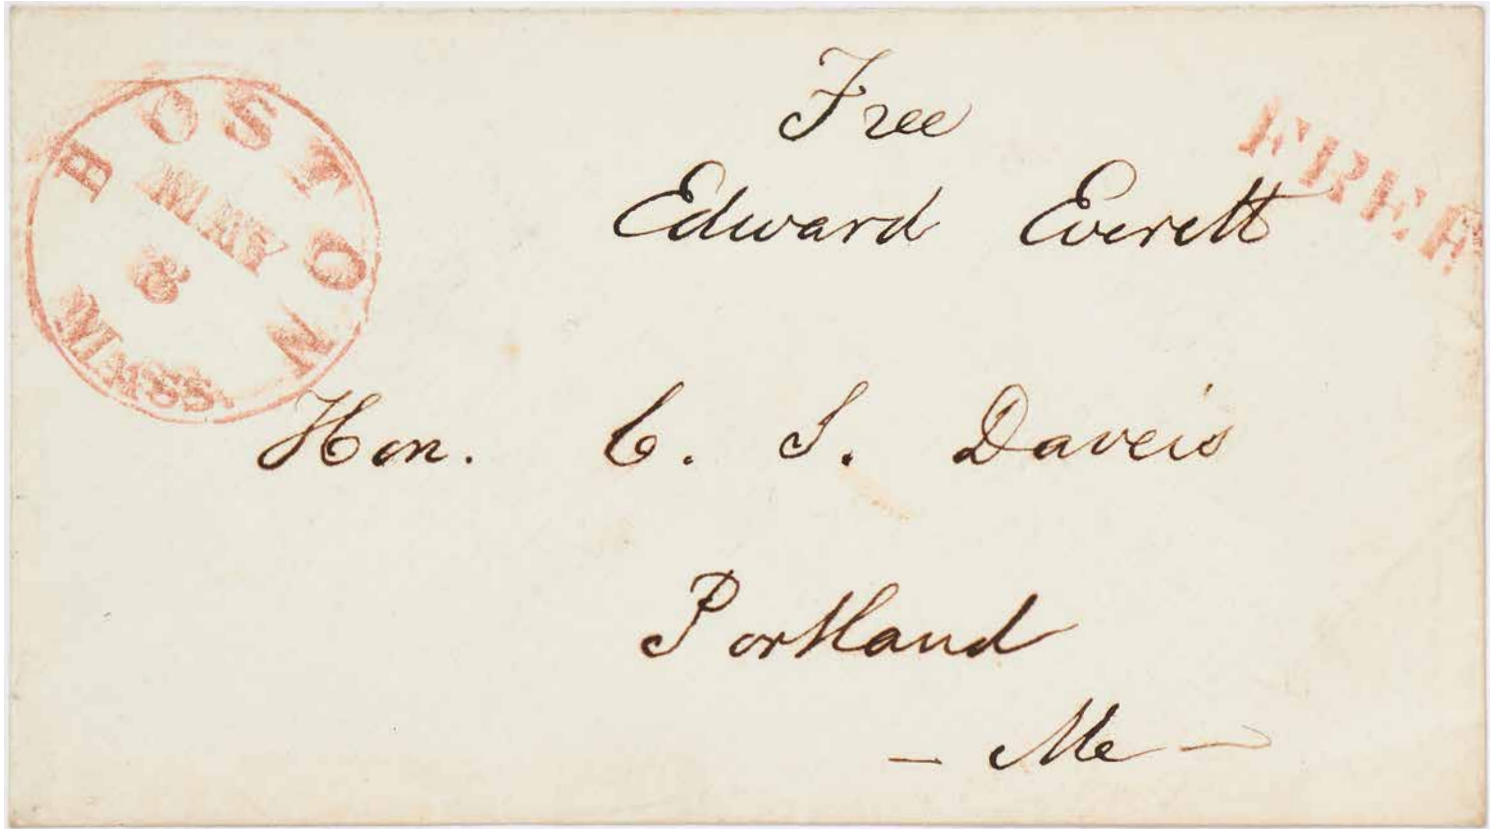 BOSTON
MAY
8
MASS.
Free
Edward Everett
FREE
Hon. C. S. Daveis
Portland
- Me -